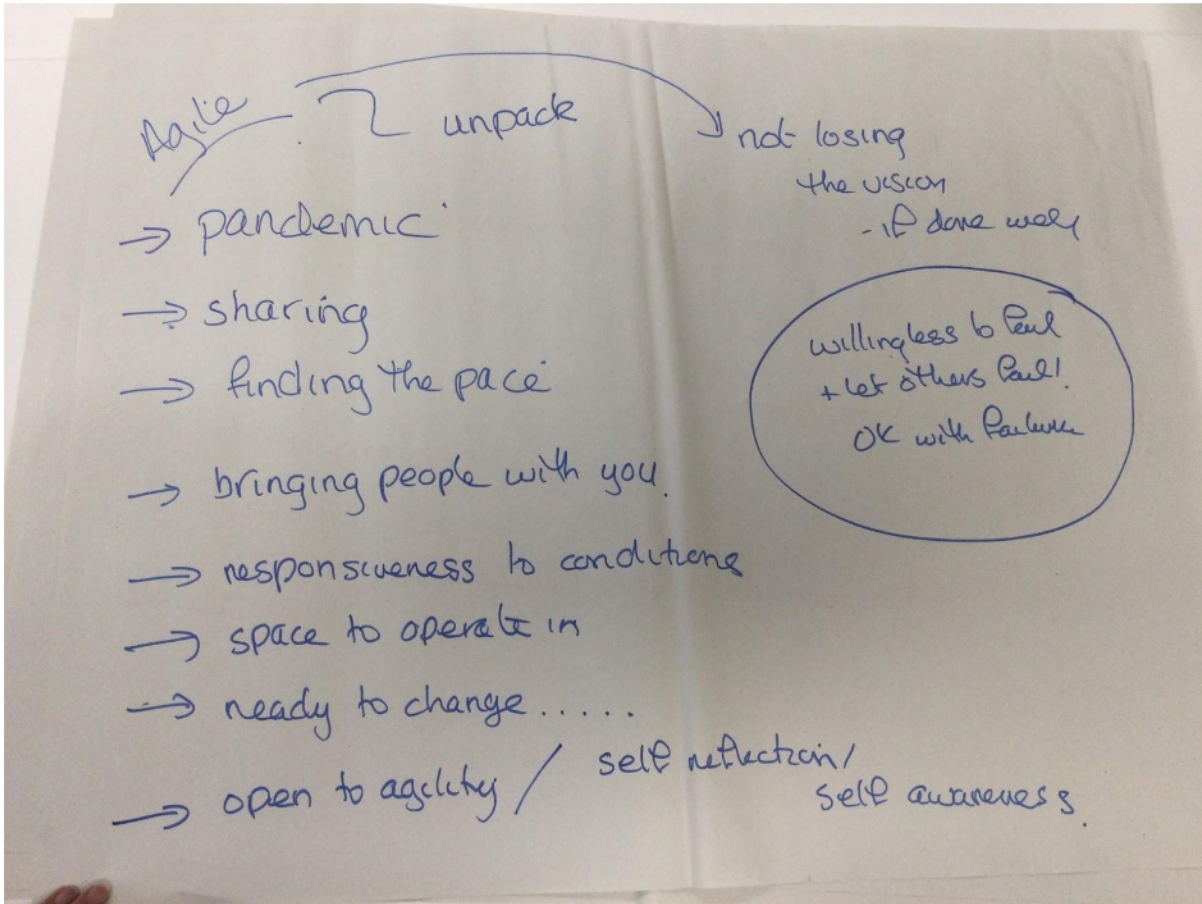 Agile
unpack
not losing
the vision
- if done well
→ pandemic
→ sharing
→ finding the pace
→ bringing people with you.
→ responsiveness to conditions
→ space to operate in
→ ready to change.....
→ open to agility / self reflection/
self awareness.
willingless to fail
+ let others fail!
OK with failure